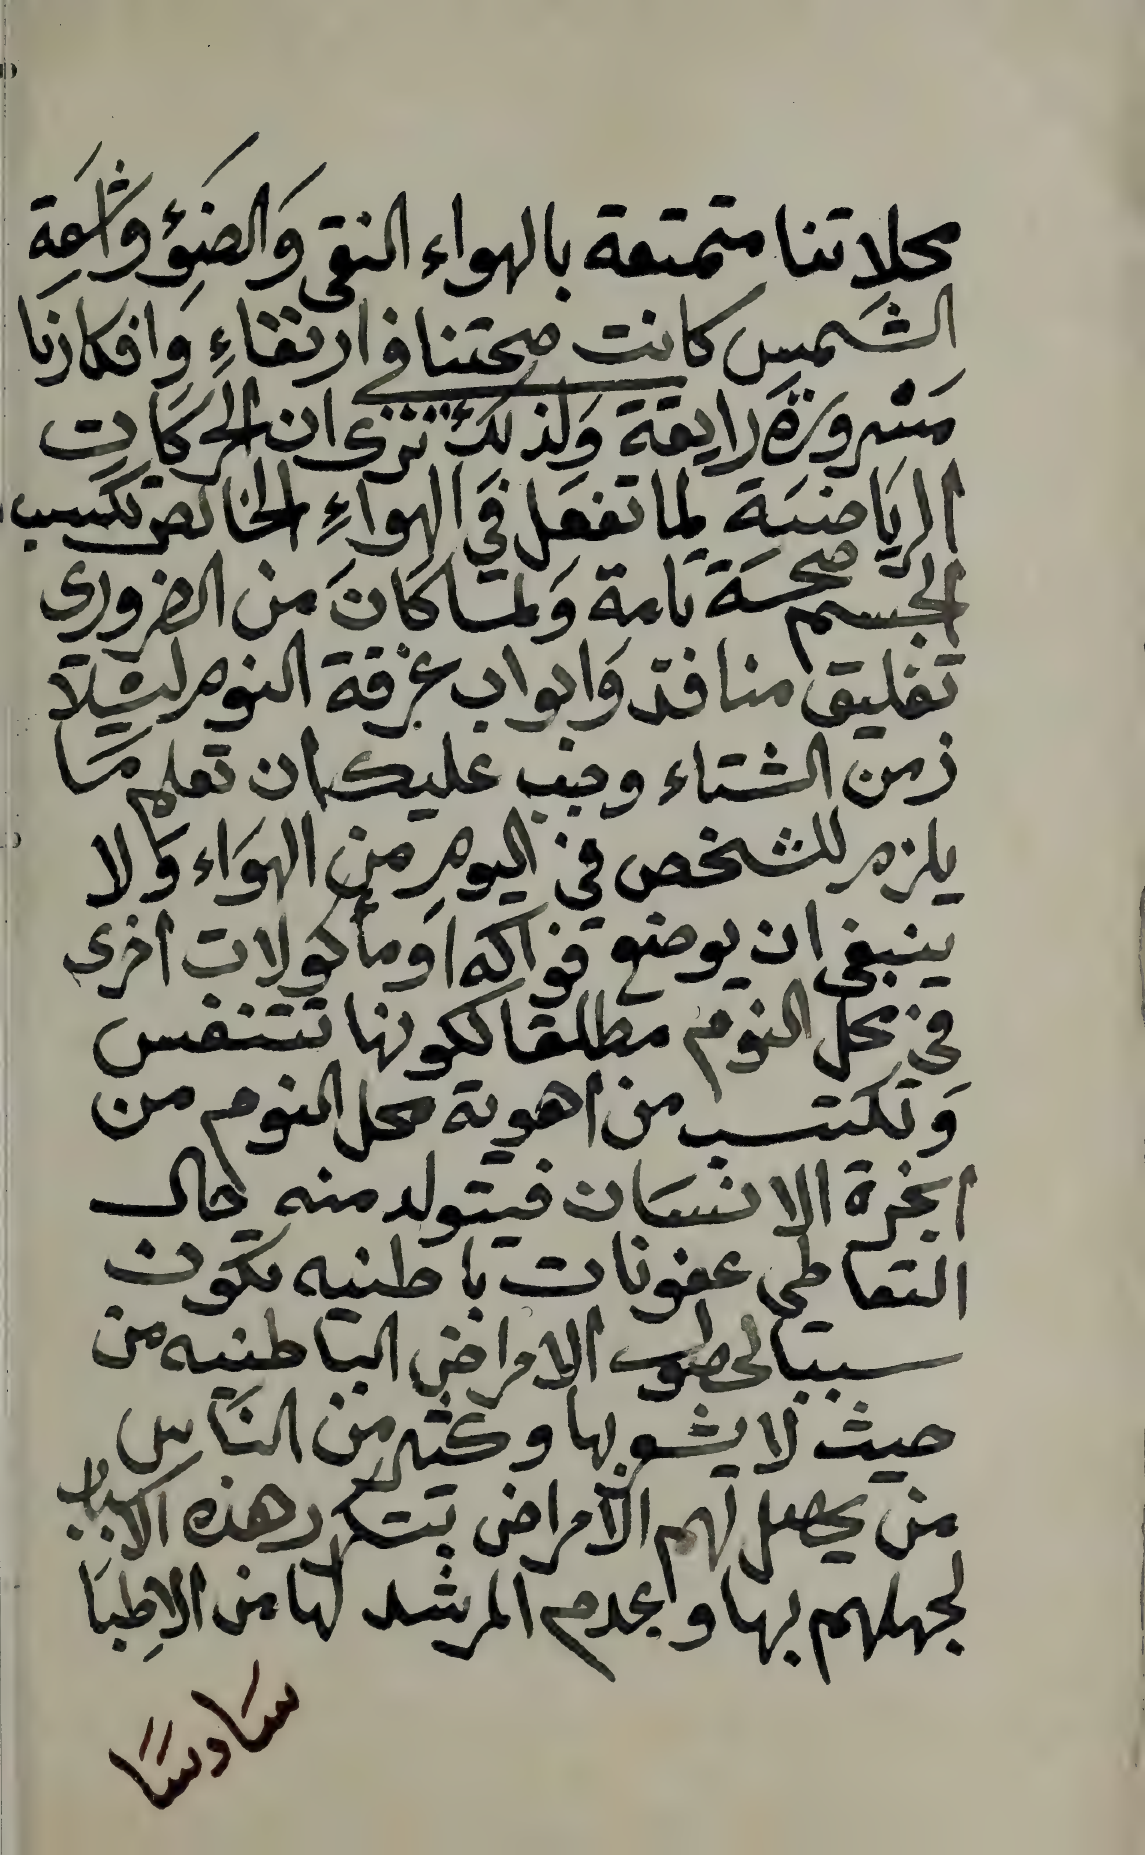 محلاتنا متمتعة بالهواء النقى وَالضوٴ واشعة
الشمس كانت صحتنا فى ارتقاءِ وَافكارنا
مَسْرورَة رايقة وَلذلك نرى ان الحركات
الريَاضيَة لما تفعَل في الهواءِ الخالص تكسب
الجسم صحَة تامة وَلما كانَ من الضرورى
تغليق منافذ وَابواب غرفة النوم ليلا
زمن الشتاء وجب عليك ان تعلم مَا
يلزم للشخص في اليوم من الهوَاء وَلا
ينبغى ان يوضع فواكه اَو مأكولات اخرى
في محل النوم مطلقا لكونها تتنفس
وَتكتسب من اهوية محل النوم من
ابخرة الانسَان فيتولد منه حال
التعاطى عفونات باطنيه تكون
سببا لحصول الامراض الباطنيه من
حيث لا يشعر بها وكثير من النَاس
من يحصل لهم الأمراض بتكرر هذه الاسباب
لجهلهم بها ولعدم المرشد لها من الاطبَا
سَادسَا